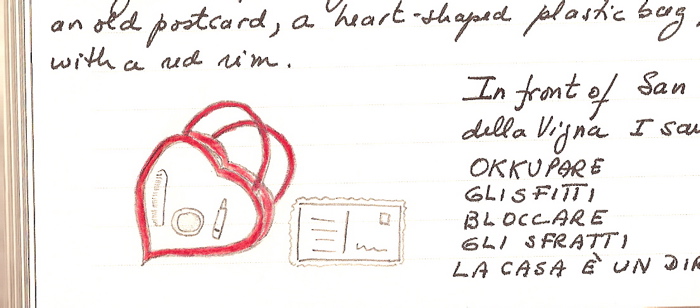 an old postcard, a heart-shaped plastic bag
with a red rim.
In front of San
della Vigna I saw
OKKUPARE
GLI SFITTI
BLOCCARE
GLI SFRATTI
LA CASA È UN DIR